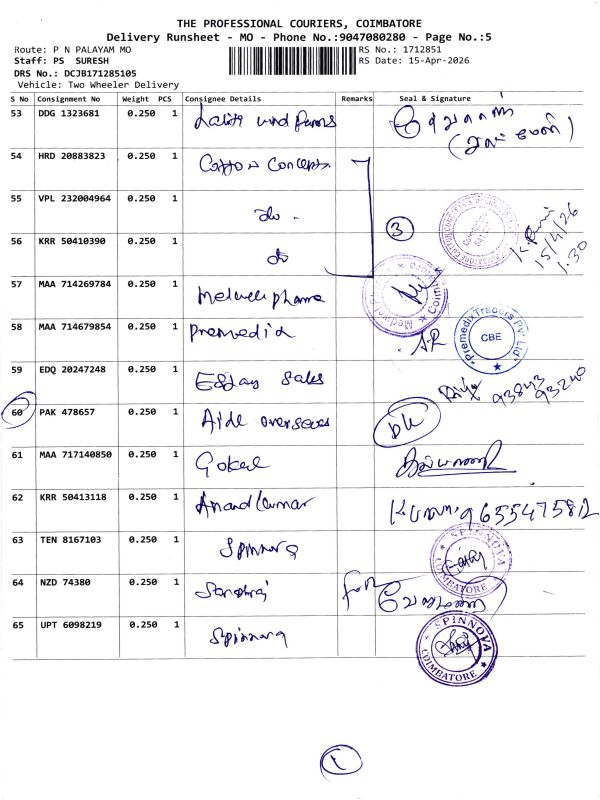 THE PROFESSIONAL COURIERS, COIMBATORE
Delivery Runsheet - MO - Phone No.:9047080280 - Page No.:5
Route: P N PALAYAM MO RS No.: 1712851
Staff: PS SURESH RS Date: 15-Apr-2026
DRS No.: DCJB171285105
Vehicle: Two Wheeler Delivery
S No Consignment No Weight PCS Consignee Details Remarks Seal & Signature
53 DDG 1323681 0.250 1 Lalith wind farms
54 HRD 20883823 0.250 1 Cotton Concepts
55 VPL 232004964 0.250 1 do - 3 15/4/26
56 KRR 50410390 0.250 1 do 1.30
57 MAA 714269784 0.250 1 Medwell pharma
58 MAA 714679854 0.250 1 Premedix PremedixTraders Pvt Ltd CBE
59 EDQ 20247248 0.250 1 Essjay Sales 93843 93240
60 PAK 478657 0.250 1 Aide overseas
61 MAA 717140850 0.250 1 Gokul
62 KRR 50413118 0.250 1 Anand kumar 9655475812
63 TEN 8167103 0.250 1 Spinnova SPINNOVA COIMBATORE
64 NZD 74380 0.250 1 for
65 UPT 6098219 0.250 1 Spinnova SPINNOVA COIMBATORE
1